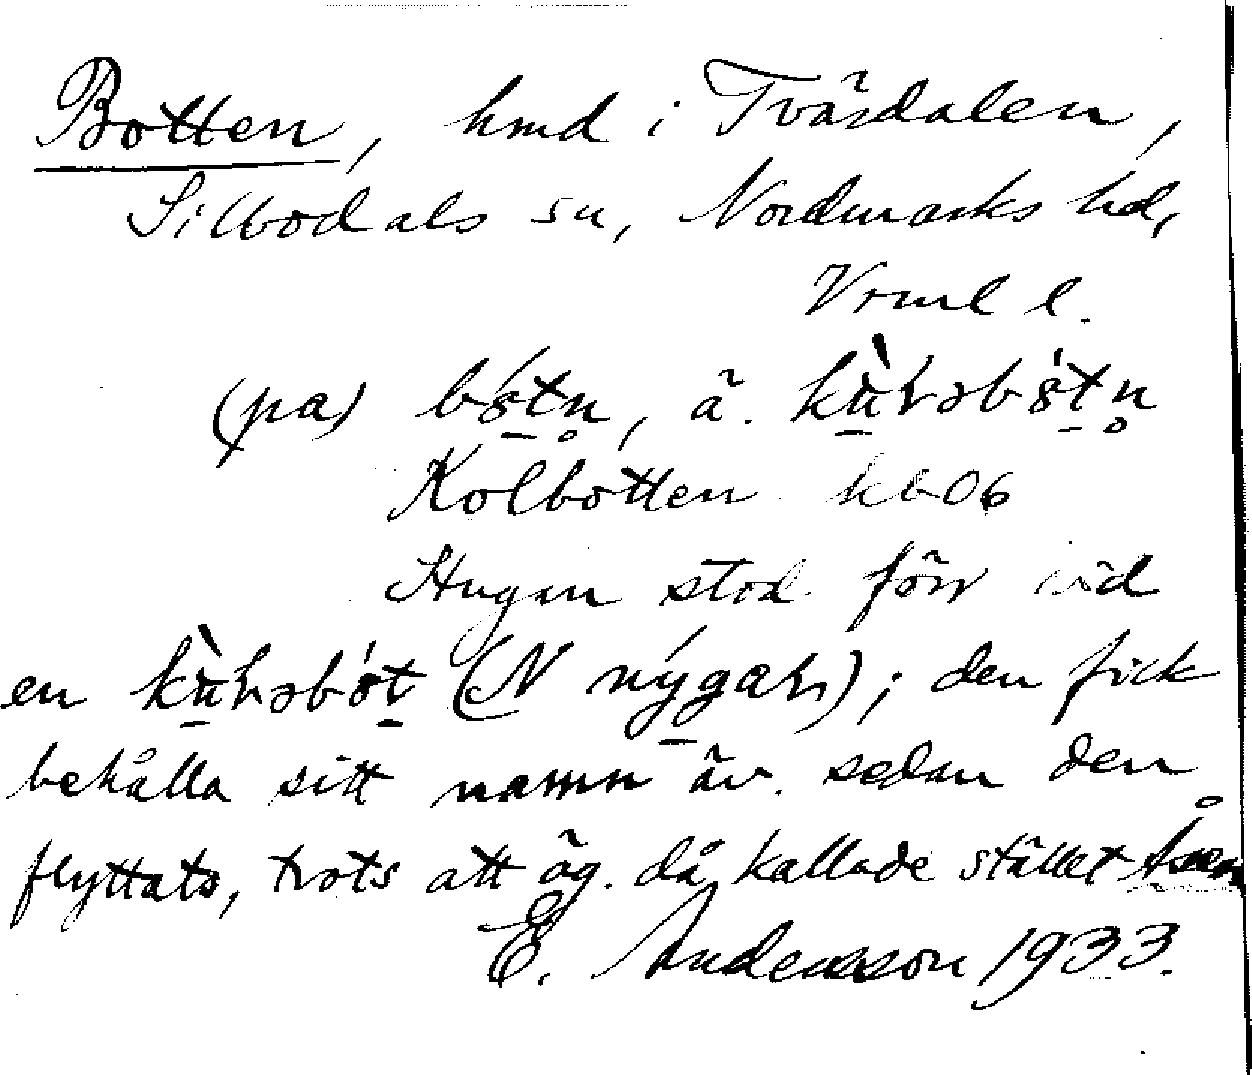 Botten, hmd i Tvärdalen,
Silbodals sn, Nordmarks hd,
Vrml l.
(på) bótn̥, ä. kùrəbótn̥
Kolbotten kb 06
Stugan stod förr vid
en kùrəbót (N nýgar); den fick
behålla sitt namn äv. sedan den
flyttats, trots att äg. då kallade stället Åsen
E. Andersson 1933.